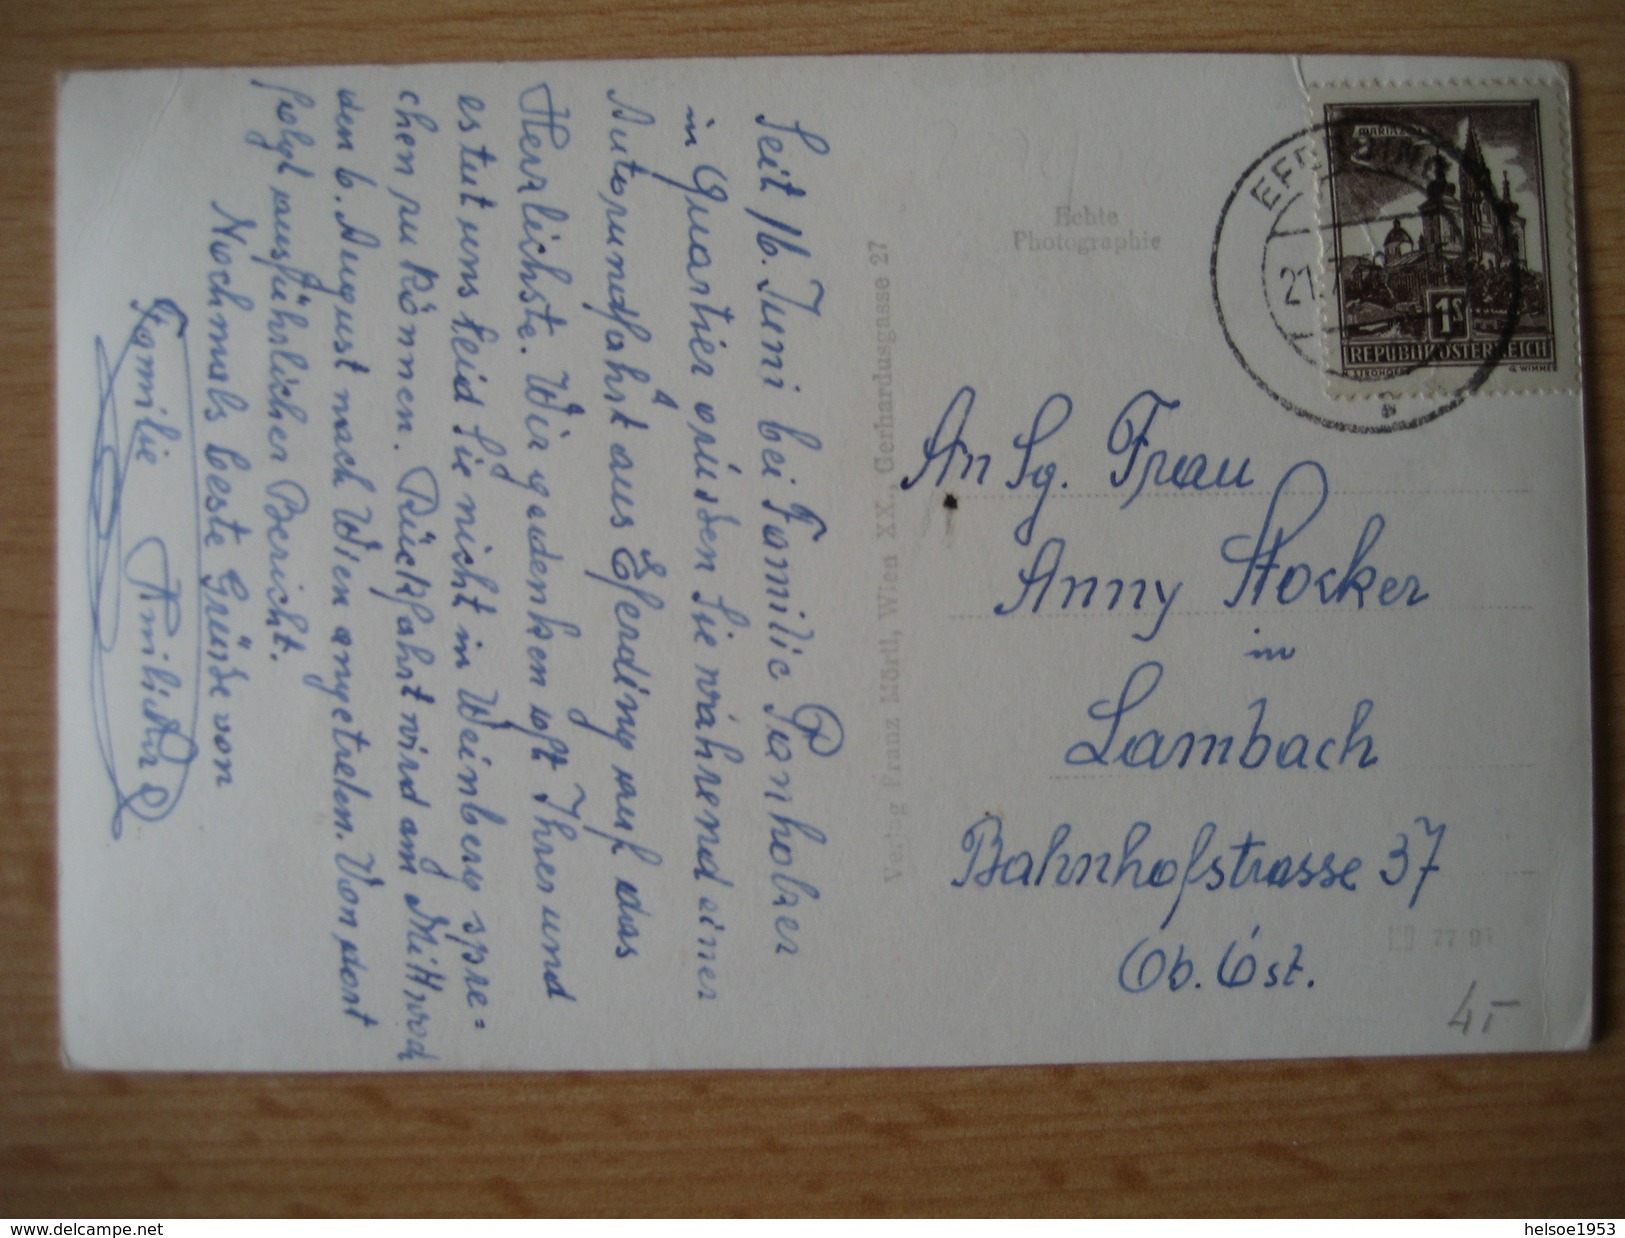 Seit 16. Juni bei Familie Planholzer
in Quartier grüßen Sie während einer
Autorundfahrt aus Eferding auf das
Herzlichste. Wir gedenken oft Ihrer und
es tut uns leid Sie nicht in Weinberg spre=
chen zu können. Rückfahrt wird am Mittwod
den 6. August nach Wien angetreten. Von dort
folgt ausführlicher Bericht.
Nochmals beste Grüße von
Familie
Verlag Franz Mörtl, Wien XX., Gerhardusgasse 27
Echte
Photographie
EFERDING
21.
MARIAZELL
1S
REPUBLIK ÖSTERREICH
H. STROHOFER
G. WIMMER
An Sg. Frau
Anny Stocker
in
Lambach
Bahnhofstrasse 37
Ob. Öst.
4,-
https://www.delcampe.net
helsoe1953